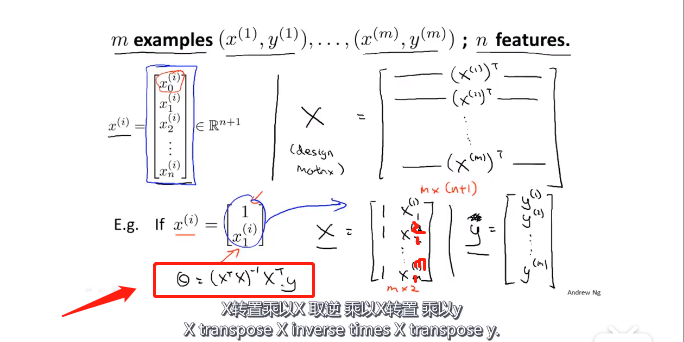 m examples (x^(1), y^(1)), ..., (x^(m), y^(m)) ; n features.
x^(i) = [x_0^(i) x_1^(i) x_2^(i) ⋮ x_n^(i)] ∈ ℝ^(n+1)
X (design matrix) = [(x^(1))^T (x^(2))^T ⋮ (x^(m))^T]
m x (n+1)
E.g. If x^(i) = [1 x_1^(i)] X = [1 x_1^(1) 1 x ⋮ 1 x] y = [y^(1) y^(2) ⋮ y^(m)]
m x 2
Θ = (X^T X)^-1 X^T y
Andrew Ng
X转置乘以X 取逆 乘以X转置 乘以y
X transpose X inverse times X transpose y.